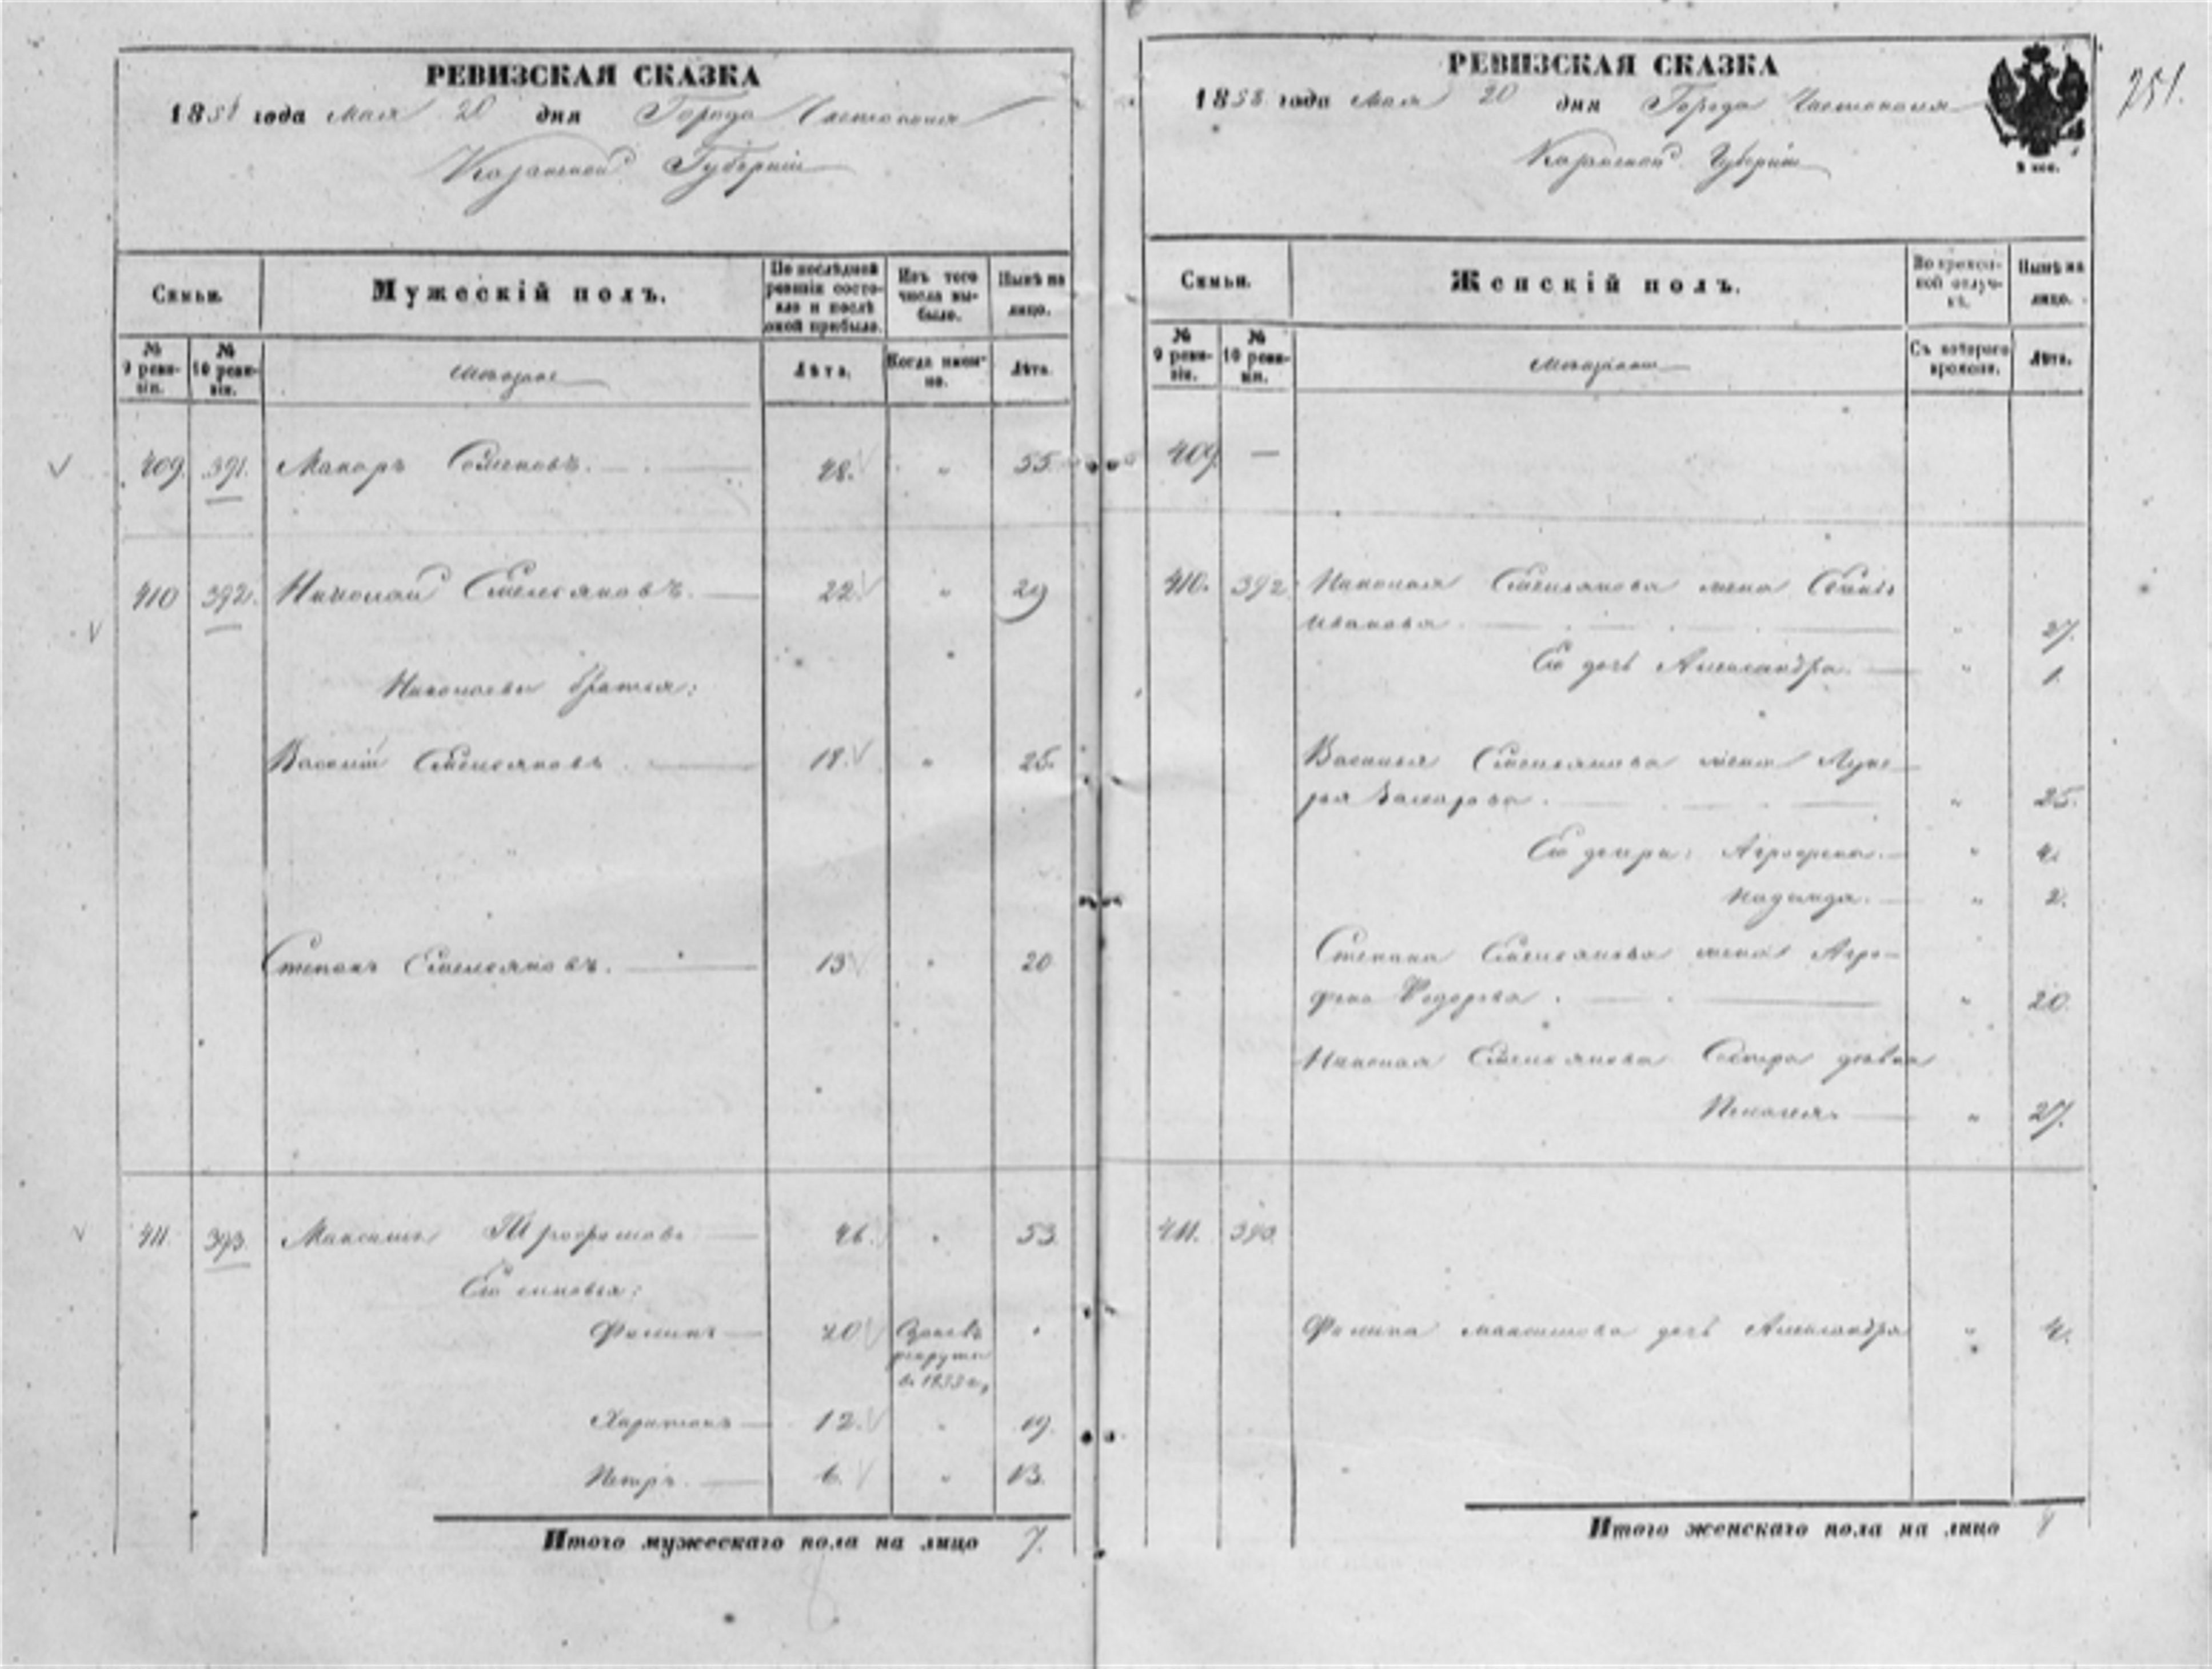 РЕВИЗСКАЯ СКАЗКА
1858 года мая 20 дня Города Чистополя
Казанской Губерніи
Семьи.
Мужескій полъ.
По послѣдней ревизіи состояло и послѣ оной прибыло.
Изъ того числа выбыло.
Нынѣ на лицо.
№ 9 ревизіи.
№ 10 ревизіи.
Лѣта.
Когда именно.
Лѣта.
409. 391. Макаръ Семеновъ. 48. " 55
410 392. Николай Емельяновъ. 22. " 29
Николаевы братья:
Василій Емельяновъ 18. " 25.
Степанъ Емельяновъ. 13 " 20
411. 393. Максимъ Трофимовъ 46. " 53
Его сыновья:
Филипъ 20 Сданъ въ
рекруты
въ 1853 г.
Харитонъ 12. " 19.
Петръ. 6. " 13.
Итого мужескаго пола на лицо 7.
251.
РЕВИЗСКАЯ СКАЗКА
1858 года мая 20 дня Города Чистополя
Казанской Губерніи
Семьи.
Женскій полъ.
Во временной отлучкѣ.
Нынѣ на лицо.
№ 9 ревизіи.
№ 10 ревизіи.
Съ котораго времени.
Лѣта.
409. —
410. 392 Николая Емельянова жена
Иванова " 27.
Ея дочь Александра. " 1.
Василья Емельянова жена Луке-
рья " 25.
Ея дочери: Агрофена. " 4.
Надежда. " 2.
Степана Емельянова жена Агро-
фена Федорова. " 20.
Николая Емельянова Сестра дѣвка
Пелагея. " 27.
411. 393.
Филипа Максимова дочь Александра " 4.
Итого женскаго пола на лицо